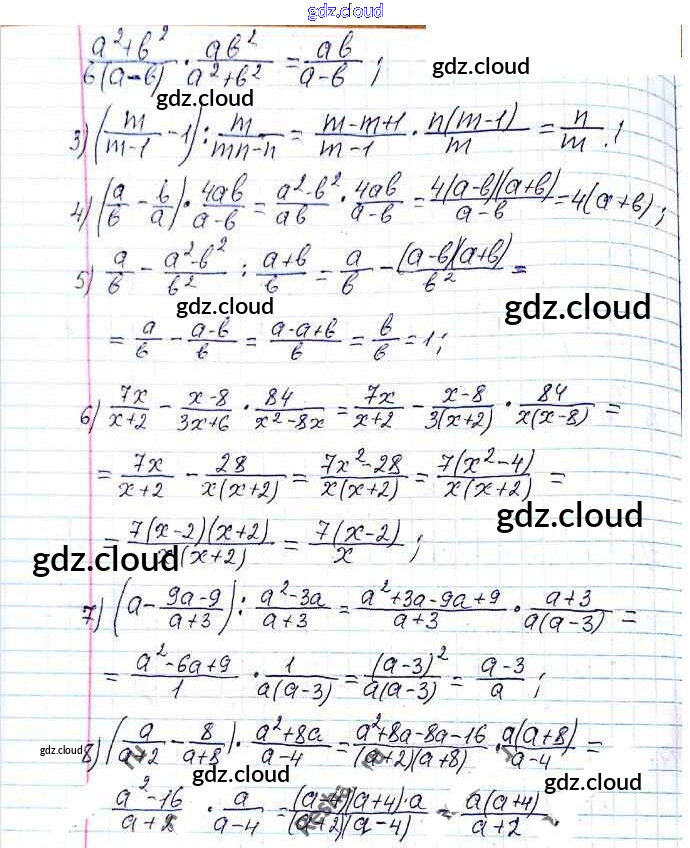 gdz.cloud
(a²+b²)/(b(a-b)) · (ab²)/(a²+b²) = (ab)/(a-b) ; gdz.cloud
gdz.cloud
3) (m/(m-1) - 1) : m/(mn-n) = (m-m+1)/(m-1) · (n(m-1))/m = n/m . !
4) (a/b - b/a) · 4ab/(a-b) = (a²-b²)/(ab) · 4ab/(a-b) = (4(a-b)(a+b))/(a-b) = 4(a+b) ;
5) a/b - (a²-b²)/b² : (a+b)/b = a/b - ((a-b)(a+b))/b² =
gdz.cloud gdz.cloud
= a/b - (a-b)/b = (a-a+b)/b = b/b = 1 ;
6) 7x/(x+2) - (x-8)/(3x+6) · 84/(x²-8x) = 7x/(x+2) - (x-8)/(3(x+2)) · 84/(x(x-8)) =
= 7x/(x+2) - 28/(x(x+2)) = (7x²-28)/(x(x+2)) = (7(x²-4))/(x(x+2)) =
gdz.cloud
= (7(x-2)(x+2))/(x(x+2)) = (7(x-2))/x ;
gdz.cloud
7) (a - (9a-9)/(a+3)) : (a²-3a)/(a+3) = (a²+3a-9a+9)/(a+3) · (a+3)/(a(a-3)) =
= (a²-6a+9)/1 · 1/(a(a-3)) = (a-3)²/(a(a-3)) = (a-3)/a ;
gdz.cloud 8) (a/(a+2) - 8/(a+8)) · (a²+8a)/(a-4) = (a²+8a-8a-16)/((a+2)(a+8)) · (a(a+8))/(a-4) =
gdz.cloud gdz.cloud
(a²-16)/(a+2) · a/(a-4) = ((a-4)(a+4)·a)/((a+2)(a-4)) = (a(a+4))/(a+2)